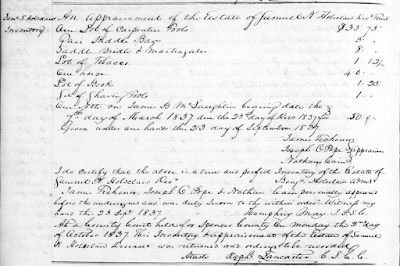 An Appraisement of the Estate of Samuel H Holsclaw Decd
Inventory
One Lot of Carpenters Tools $35 75
Pair Saddle Bags 3
Saddle Bridle & Martingales 8
Lot of Tobacco 1 12½
One horse 40
Lot of Books 1 25
Set of Shaving Tools 1
One Note on James D McLaughlin bearing date the
7th day of March 1837 due the 25th day of Decr 1837 for 50
Given under our hands the 23 day of September 1837
James Fichener
Joseph C Pope Appraisers
Nathan Cain
I do certify that the above is a true and perfect Inventory of the Estate of
Samuel H Holsclaw Decd Holsclaw Admr
James Fichener Joseph C Pope & Nathan Cain personally appeared
before the undersigned and was duly sworn to the within order Witness my
hand the 23 Sept 1837 Humphrey May
At a County Court held for Spencer County On Monday the day
of October 1837 This Inventory & appraisement of the Estate of Samuel
H Holsclaw Deceased was returned and ordered to be recorded
Attest Ralph Lancaster C.S.C.C.